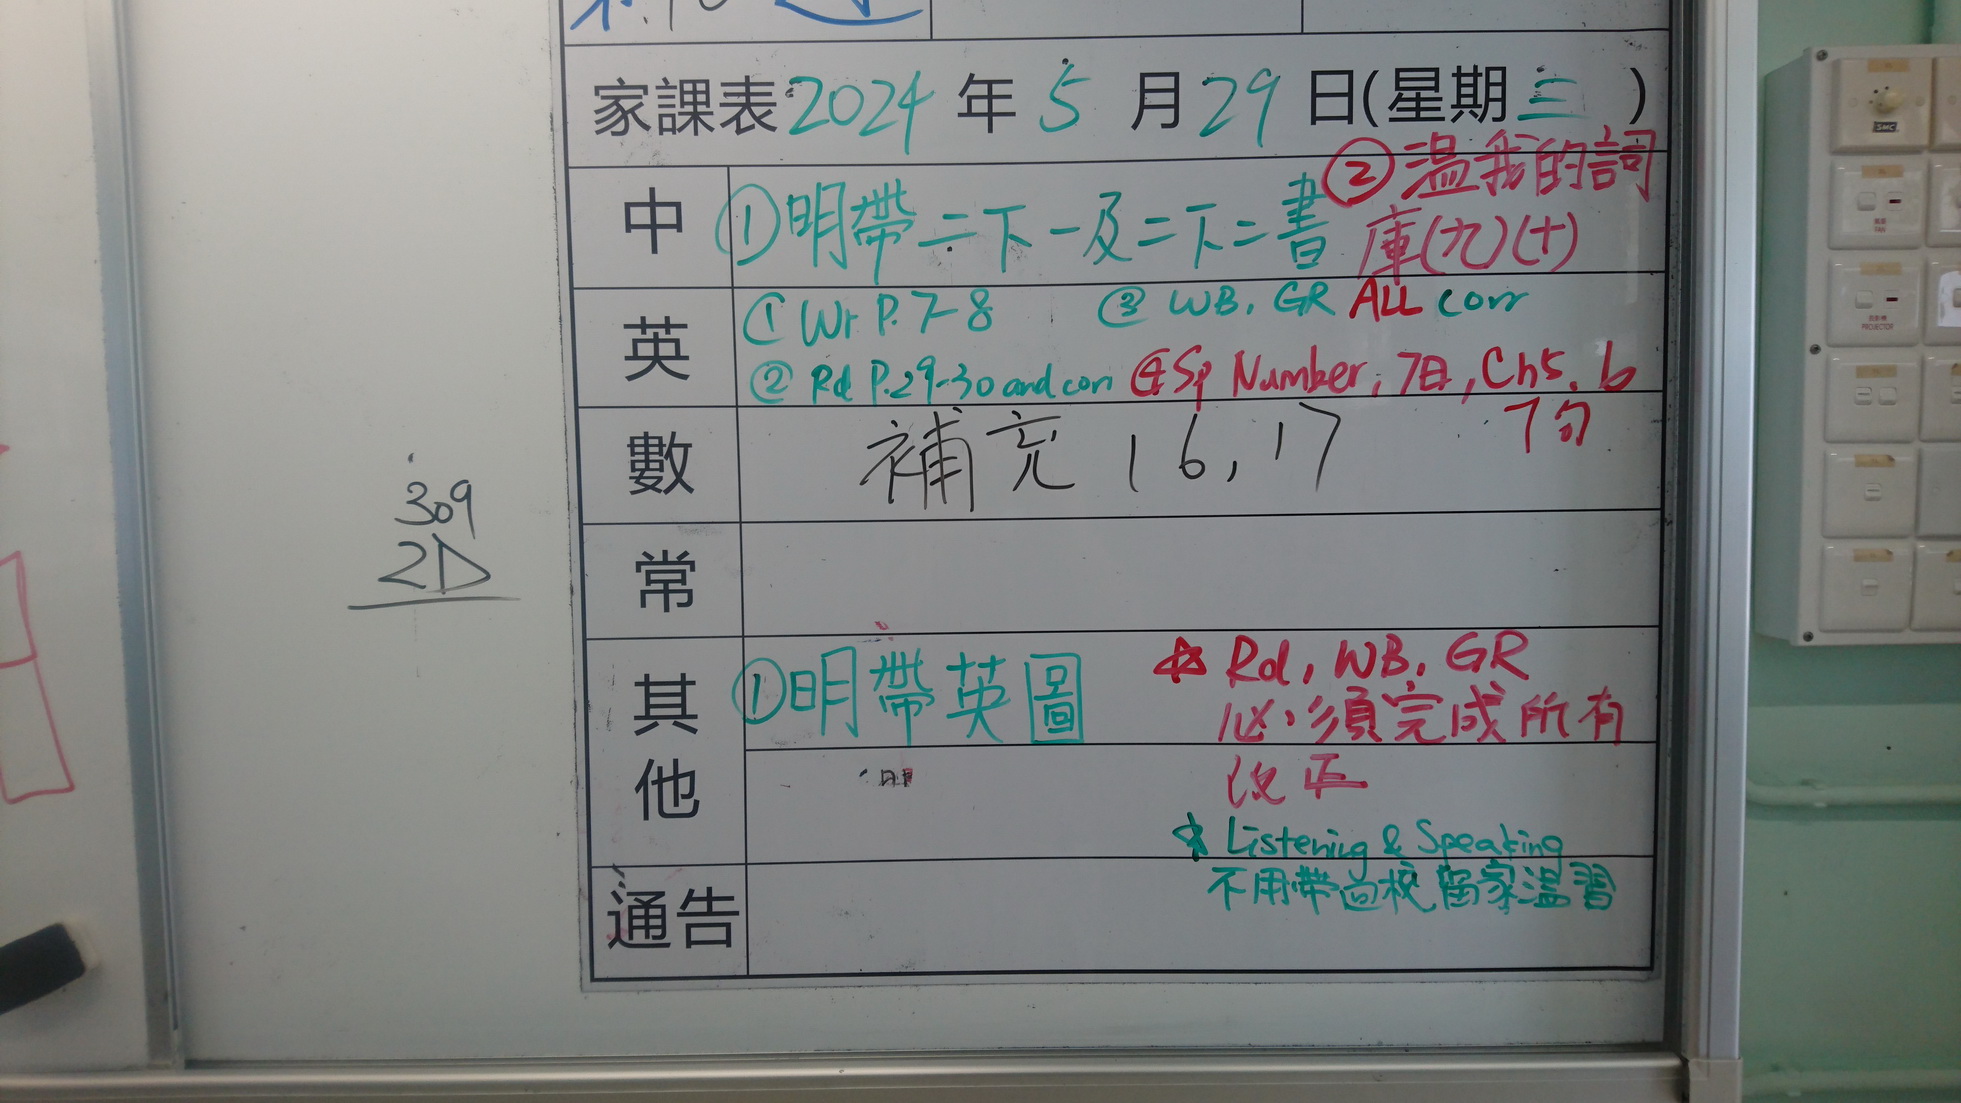 家課表2024年5月29日(星期三)
中
①明帶二下一及二下二書
②溫我的詞
庫(九)(十)
英
①Wr P.7-8
③WB, GR ALL corr
②Rd P.29-30 and corr
④Sp Number, 7日, Ch5, 6
7句
數
補充16,17
309
2D
常
其他
①明帶英圖
☆ Rd, WB, GR
必須完成所有
改正
☆ Listening & Speaking
不用帶回校留家溫習
通告
SMC
FAN
PROJECTOR